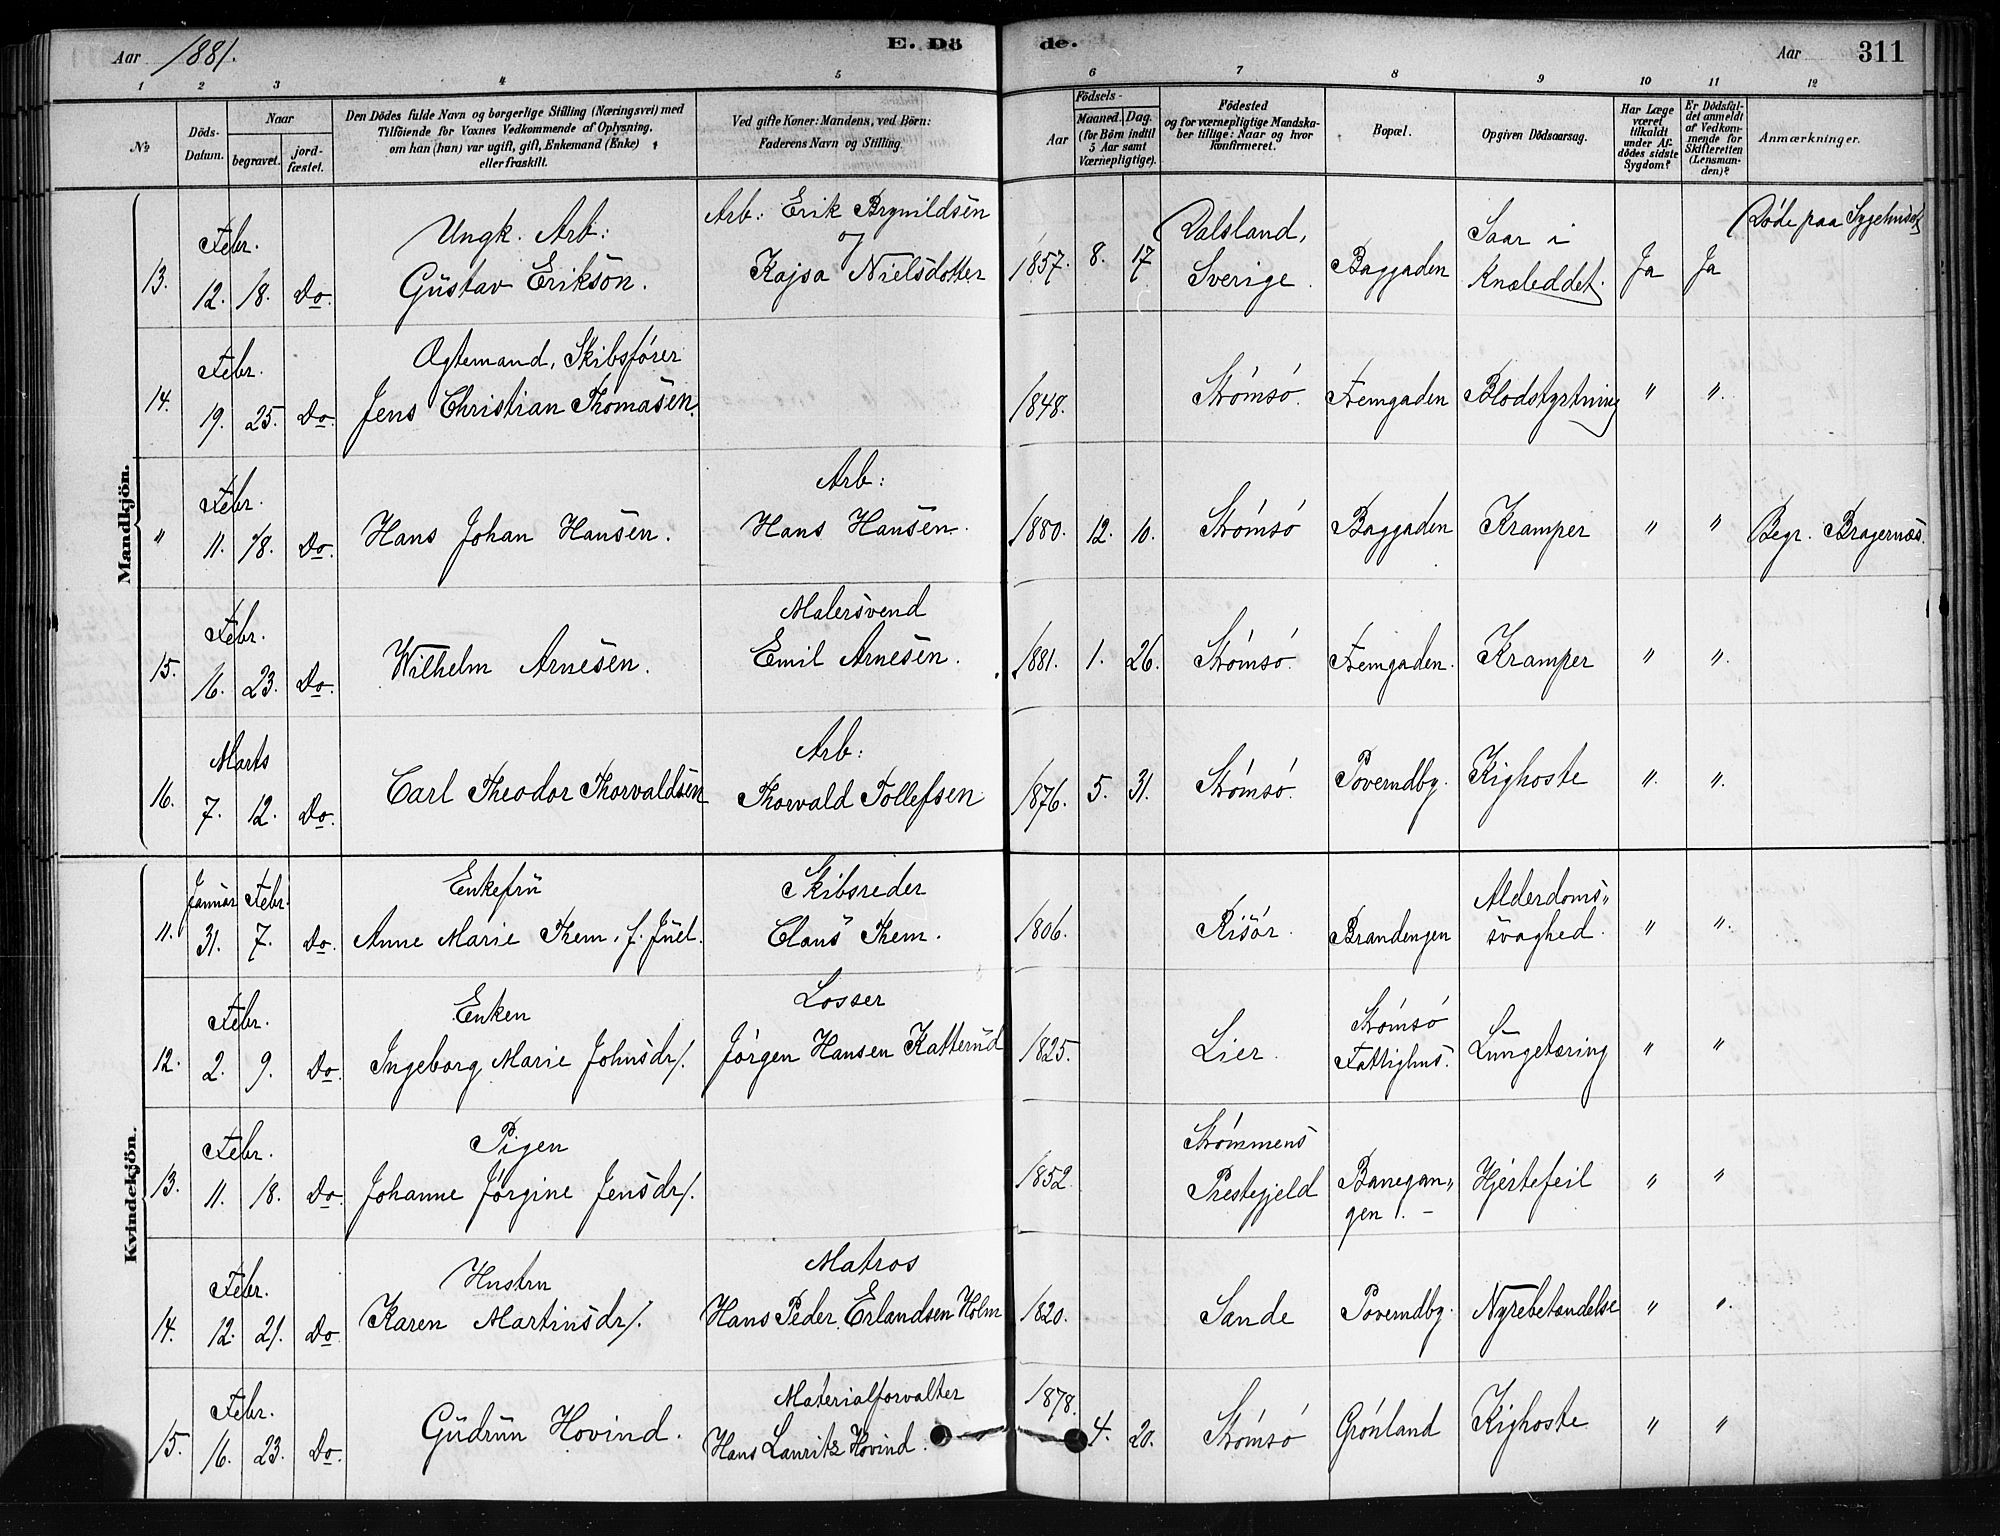 Aar 1881. E. Dö de. Aar 311
1 2 3 4 5 6 7 8 9 10 11 12
No Döds-Datum. Naar begravet. jord-fæstet. Den Dödes fulde Navn og borgerlige Stilling (Næringsvei) med Tilföiende for Voxnes Vedkommende af Oplysning, om han (hun) var ugift, gift, Enkemand (Enke) eller fraskilt. Ved gifte Koner: Mandens, ved Börn: Faderens Navn og Stilling. Födsels- Aar Maaned. Dag. (for Börn indtil 5 Aar samt Værnepligtige). Födested og for værnepligtige Mandskaber tillige: Naar og hvor Konfirmeret. Bopæl. Opgiven Dödsaarsag. Har Læge været tilkaldt under Afdödes sidste Sygdom? Er Dödsfaldet anmeldt af Vedkommende for Skifteretten (Lensmanden)? Anmærkninger.
Mandkjön.
Febr. Ungk. Arb: Arb: Erik Brynildsen og Dalsland, Saar i Døde paa Sygehuset
13. 12. 18. Do. Gustav Erikson. Kajsa Nielsdotter 1857. 8. 17 Sverige. Baggaden Knæleddet. Ja Ja
Febr. Ægtemand, Skibsfører
14. 19. 25. Do. Jens Christian Thomasen. 1848. Strømsø. Fremgaden Blodstyrtning " ".
Febr. Arb:
" 11. 18. Do. Hans Johan Hansen. Hans Hansen. 1880. 12. 10. Strømsø Baggaden Kramper " " Begr. Bragernæs.
Febr. Malersvend
15. 16. 23. Do. Wilhelm Arnesen. Emil Arnesen. 1881. 1. 26. Strømsø. Fremgaden. Kramper " ".
Marts Arb:
16. 7. 12. Do. Carl Theodor Thorvaldsen Thorvald Tollefsen 1876. 5. 31. Strømsø. Poverudby. Kighoste ". ".
Kvindekjön.
Januar Febr. Enkefru Skibsreder Alderdoms"
11. 31. 7. Do. Anne Marie Them, f. Juel. Claus Them. 1806. Risør. Brandengen svaghed. " ".
Febr. Enken Losser Strømsø
12. 2. 9. Do. Ingeborg Marie Johnsdr/. Jørgen Hansen Katterud 1825. Lier. Fattighus. Lungetæring " "
Febr. Pigen Strømmens
13. 11. 18. Do. Johanne Jørgine Jensdr/. 1852. Prestegjeld Banegan" gen. Hjertefeil " "
Febr. Hustru Matros
14. 12. 21. Do. Karen Martinsdr/. Hans Peder Erlandsen Holm 1820. Sande Poverudby. Nyrebetændelse " ".
Febr. Materialforvalter 1878.
15. 16. 23. Do. Gudrun Hovind. Hans Lauritz Hovind. 4. 20. Strømsø Grønland Kighoste " "